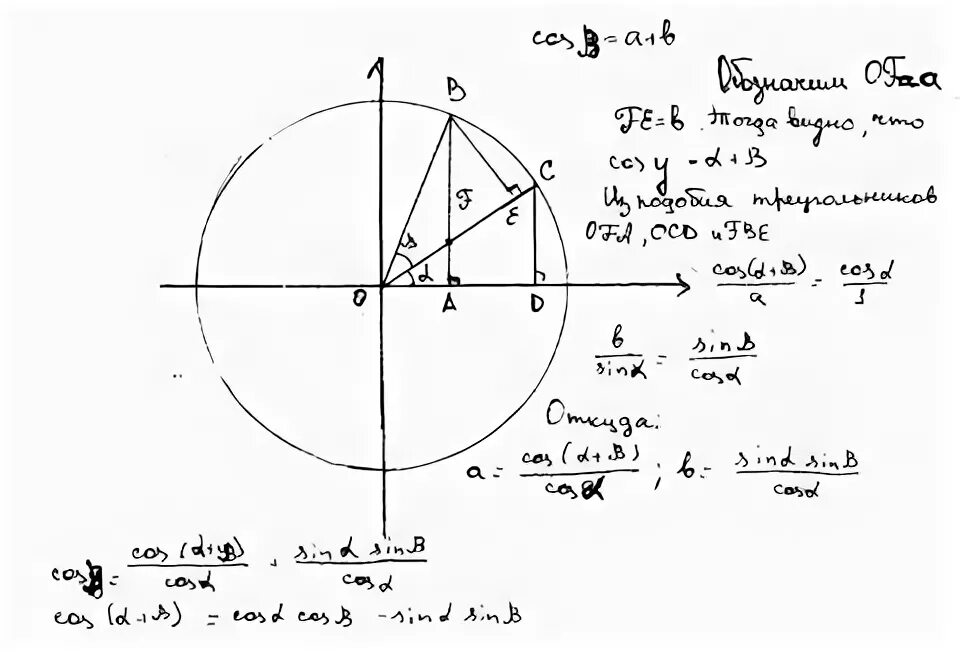 cos β = a + b
Обозначим OF = a
FE = b. Тогда видно, что
cos y = α + β
Из подобия треугольников
OFA, OCD и FBE
cos(α+β)/a = cosα/1
b/sinα = sinβ/cosα
Откуда:
a = cos(α+β)/cosα ; b = sinα sinβ/cosα
B
C
F
E
α
O
A
D
cos β = cos(α+β)/cosα + sinα sinβ/cosα
cos(α+β) = cosα cosβ - sinα sinβ